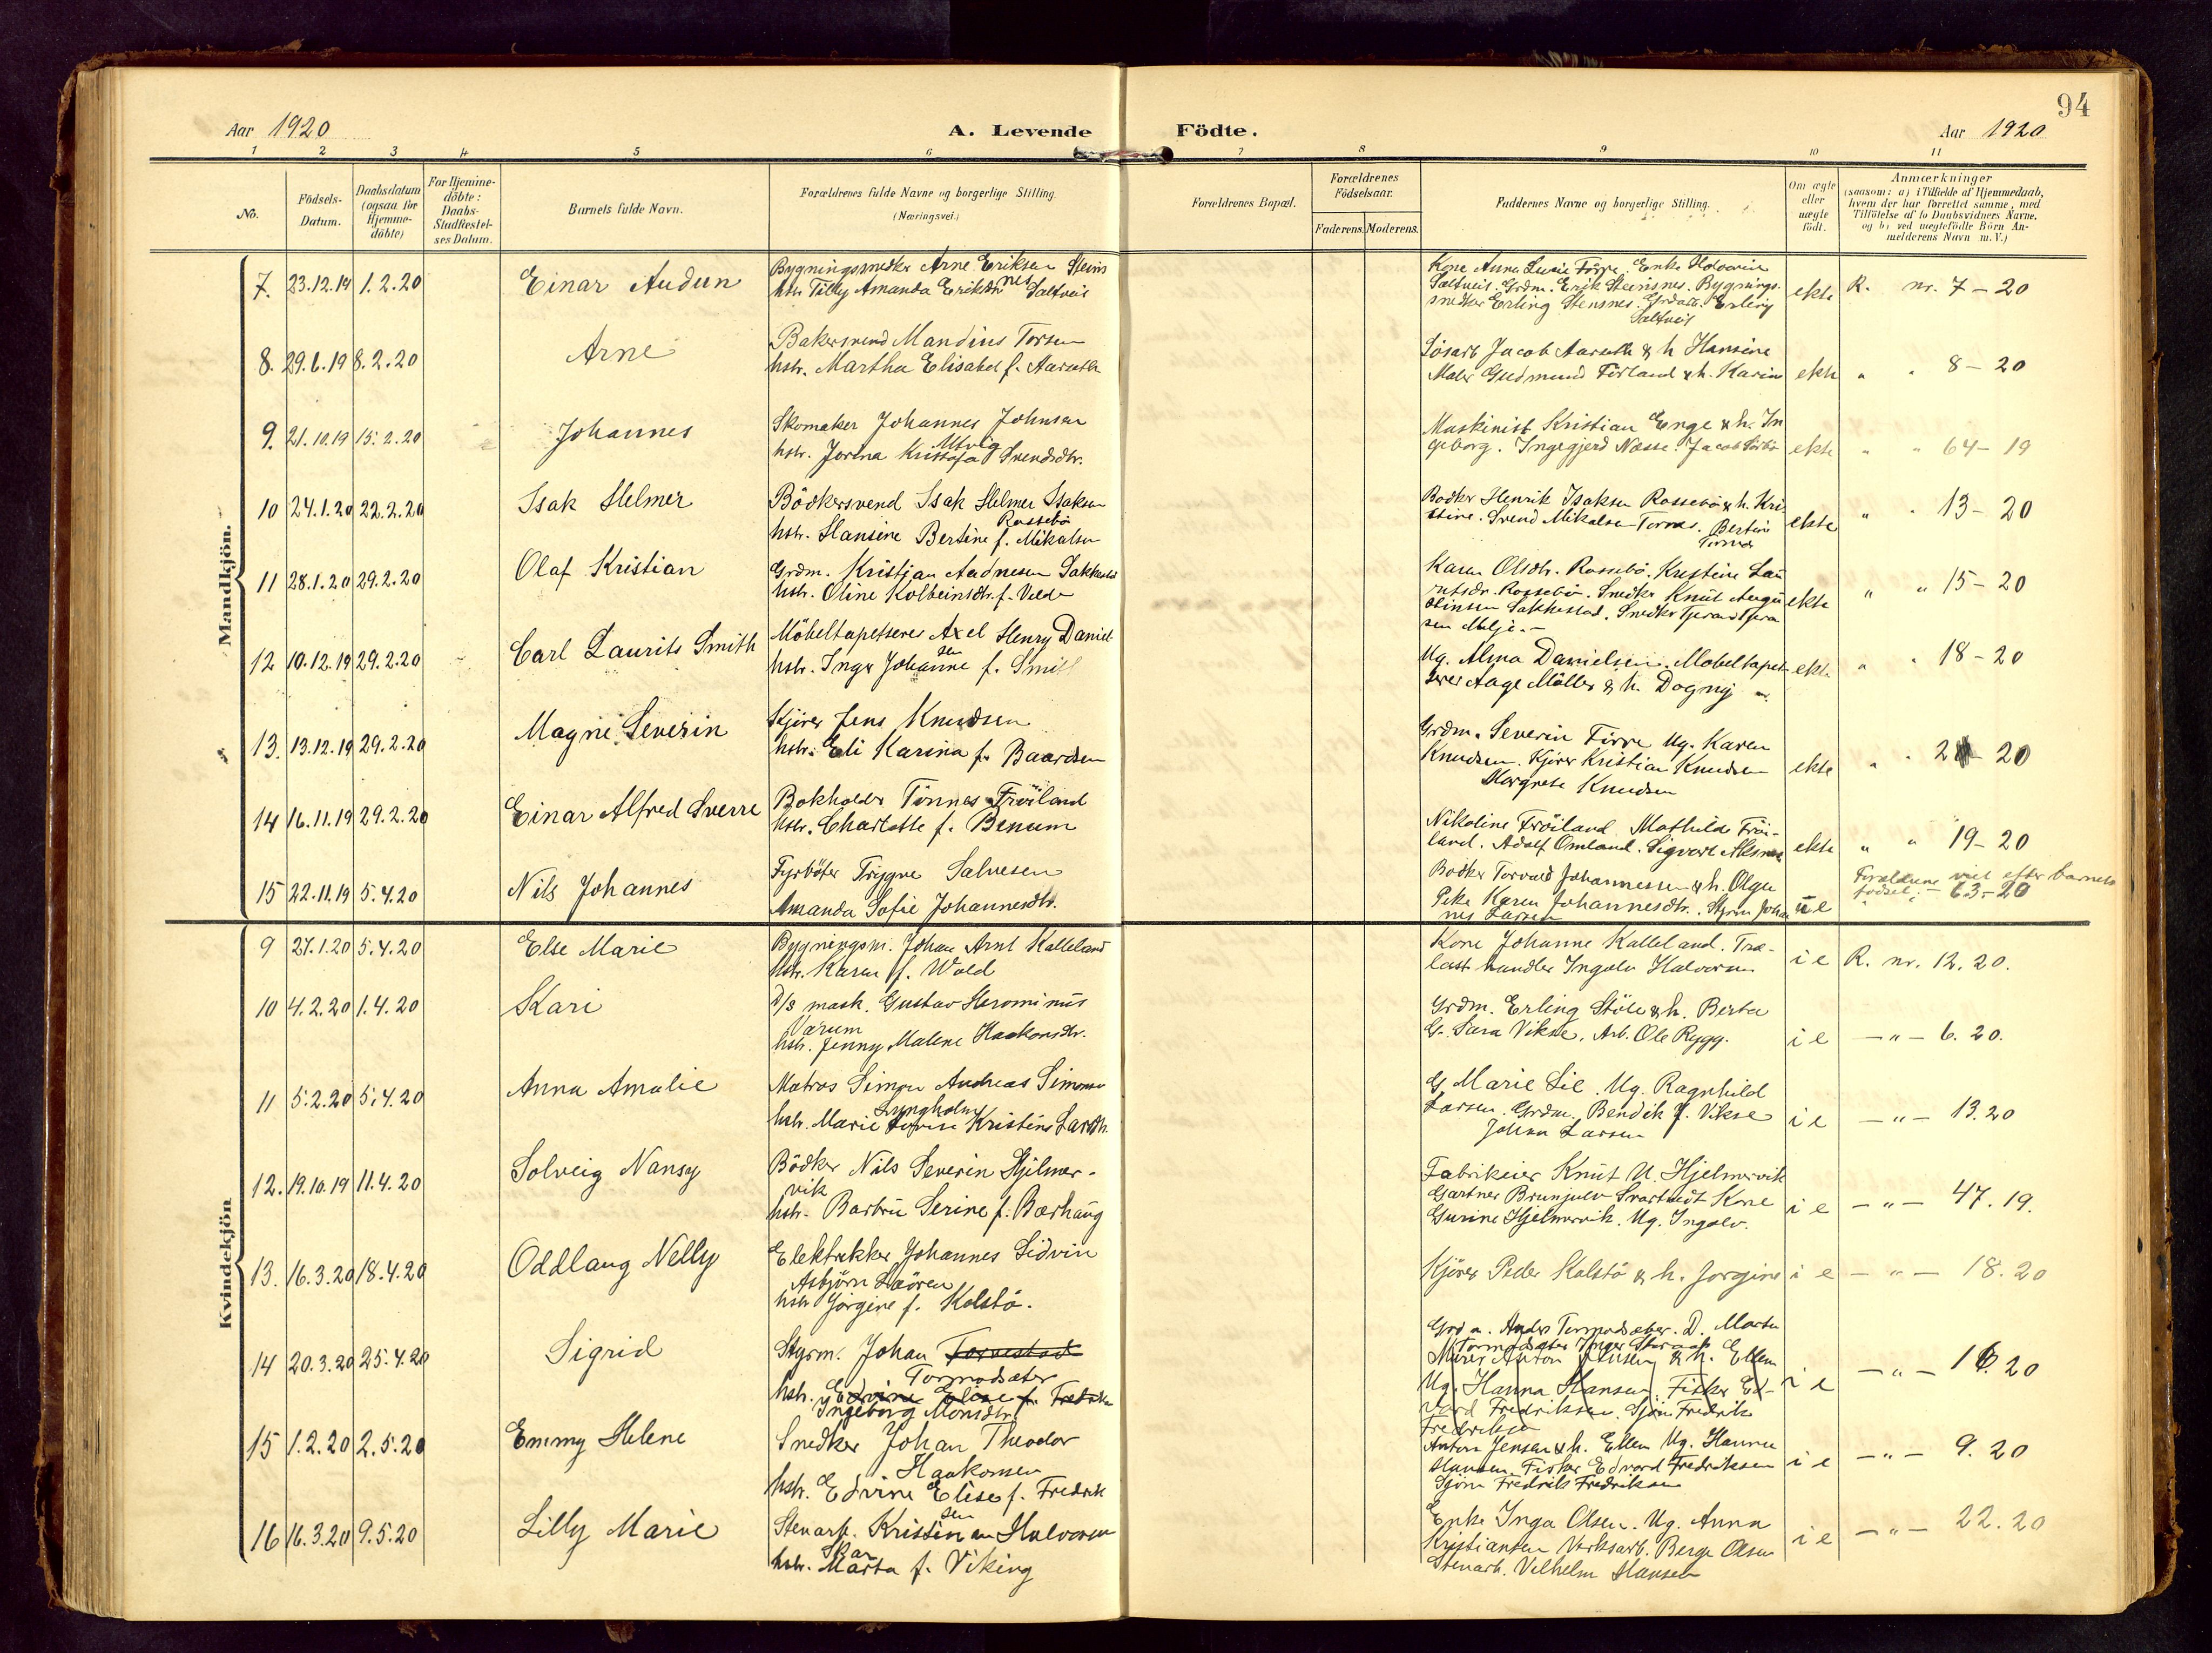 94
Aar 1920
A. Levende Födte.
Aar 1920
1 2 3 4 5 6 7 8 9 10 11
No.
Födsels-
Datum.
Daabsdatum
(ogsaa for
Hjemme-
döbte)
For Hjemme-
döbte:
Daabs-
Stadfæstel-
ses Datum.
Barnets fulde Navn.
Forældrenes fulde Navne og borgerlige Stilling.
(Næringsvei.)
Forældrenes Bopæl.
Forældrenes
Födselsaar.
Faderens. Moderens.
Faddernes Navne og borgerlige Stilling.
Om ægte
eller
uægte
født.
Anmærkninger
(saasom: a) i Tilfælde af Hjemmedaab,
hvem der har forrettet samme, med
Tilföielse af to Daabsvidners Navne.
og b) ved uegtefödte Börn An-
melderens Navn m. V.)
Mandkjön.
7. 23.12.19 1.2.20 Einar Audun
Bygningssnedker Arne Eriksen Steins
nes
hstr. Tilly Amanda Eriksdtr. Saltveit
Kone Anna Lovise Förre. Enke
Saltveit. Grdm. Erik Steinsnes. Bygnings-
snedker Erling Stensnes. Erling
Saltveit
ekte R. nr. 7-20
8. 29.6.19 8.2.20 Arne
Bakersvend Mandius Torsen
hstr. Martha Elisabet f. Aarseth
Løsarb Jacob Aarseth & h. Hansine
Maler Gudmund Förland & h. Karin
ekte " " 8-20
9. 21.10.19 15.2.20 Johannes
Skomaker Johannes Johnsen
Utvig
hstr. Jorina Kristofa Svendsdtr.
Maskinist Kristian Enge & h. In
geborg. Ingegjerd Nesse. Jacob
ekte " " 64-19
10 24.1.20 22.2.20 Isak Helmer
Bödkersvend Isak Helmer Isaksen
Rossebö
hstr. Hansine Bertine f. Mikalsen
Bødker Henrik Isaksen Rossebö & h. Kri
stine. Svend Mikalsen Tornes. Bertine
Tornes
ekte " " 13-20
11 28.1.20 29.2.20 Olaf Kristian
Grdm. Kristian Aadnesen Sakkestad
hstr. Oline Kolbeinsdtr. f. Velde
Karen Olsdtr. Rossebö. Kristine Lau
ritsdr. Rossebö. Snedker Knut Augu
stinsen Sakkestad. Snedker Tjerand Tjera
sen Melje.
ekte " " 15-20
12 10.12.19 29.2.20 Carl Laurits Smith
Möbeltapetserer Axel Henry Daniel
sen
hstr. Inger Johanne f. Smith
Ug. Alma Danielsen. Möbeltapet
serer Aage Möller & h. Dagny
ekte " " 18-20
13. 13.12.19 29.2.20 Magne Severin
Kjörer Jens Knudsen
hstr. Eli Karina f. Baardsen
Grdm. Severin Förre Ug. Karen
Knudsen. Kjörer Kristian Knudsen
Margrete Knudsen
ekte " " 20
14 16.11.19 29.2.20 Einar Alfred Sverre
Bokholder Tönnes Fröiland
hstr. Charlotte f. Benum
Nikoline Fröiland. Mathilde Fröi-
land. Adolf Omland. Sigvart
ekte " " 19-20
15 22.11.19 5.4.20 Nils Johannes
Fyrböter Trygve Salvesen
Amanda Sofie Johannesdtr.
Bødker Torvald Johannessen & h. Olga
Pike Karen Johannesdtr. Styrm Johan
nes Larsen
u e
Forældrene viet efter barnets
födsel. - 63-20
Kvindekjön
9 27.1.20 5.4.20 Else Marie
Bygningsm. Johan Arnt Kalleland
hstr. Karen f. Wold
Kone Johanne Kalleland. Træ-
last handler Ingolv Halvorsen
i e R. nr. 12.20.
10 4.2.20 1.4.20 Kari
D/s mask. Gustav Herominus
Varum
hstr. Jenny Malene Haakonsdtr.
Grdm. Erling Stöle & h. Berta
G. Sara Vikse. Arb. Ole Rygg.
i e -"- 6.20.
11 5.2.20 5.4.20 Anna Amalie
Matros Simon Andreas Simonsen
Lyngholm
hstr. Marie Kristine Larsdtr.
G. Marie Lie. Ug. Ragnhild
Larsen. Grdm. Bendik J. Vikse
Johan Larsen
i e -"- 13.20
12. 19.10.19 11.4.20 Solveig Nansy
Bödker Nils Severin Hjelmer-
vik
hstr. Barbru Serine f. Bærhaug
Fabrikeier Knut U. Hjelmervik
Gartner Brunjulv Svartvedt Kone
Gurine Hjelmervik. Ug. Ingolv.
i e -"- 47.19.
13. 16.3.20 18.4.20 Oddlaug Nelly
Elektrikker Johannes Lidvin
Asbjörn
hstr Jörgine f. Kolstö.
Kjörer Peder Kolstö & h. Jorgine
i e -"- 18.20
14 20.3.20 25.4.20 Sigrid
Styrm. Johan Torvestad
Tormodsæter
hstr. Edvine Elise f. Fredriksen
Ingeborg Monsdtr.
Anders Tormodsæter. D. Marta
Tormodsæter
Murer Anton Jensen & h. Ellen
Ug. Hanna Hansen. Fisker Ed-
vard Fredriksen. Sjöm Fredrik
Fredriksen
i e -"- 16.20
15 1.2.20 2.5.20 Emmy Helene
Snedker Johan Theodor
Haakonsen
hstr. Edvine Elise f. Fredrik
sen
Anton Jensen & h. Ellen Ug. Hanna
Hansen Fisker Edvard Fredriksen
Sjöm Fredrik Fredriksen
i e -"- 9.20
16 16.3.20 9.5.20 Lilly Marie
Stenarb. Kristian Halvorsen
Skar
hstr. Marta f. Viking
Enke Inga Olsen. Ug. Anna
Kristiansen Verksarb. Berge Olsen
Stenarb. Vilhelm Hansen
i e -"- 22.20